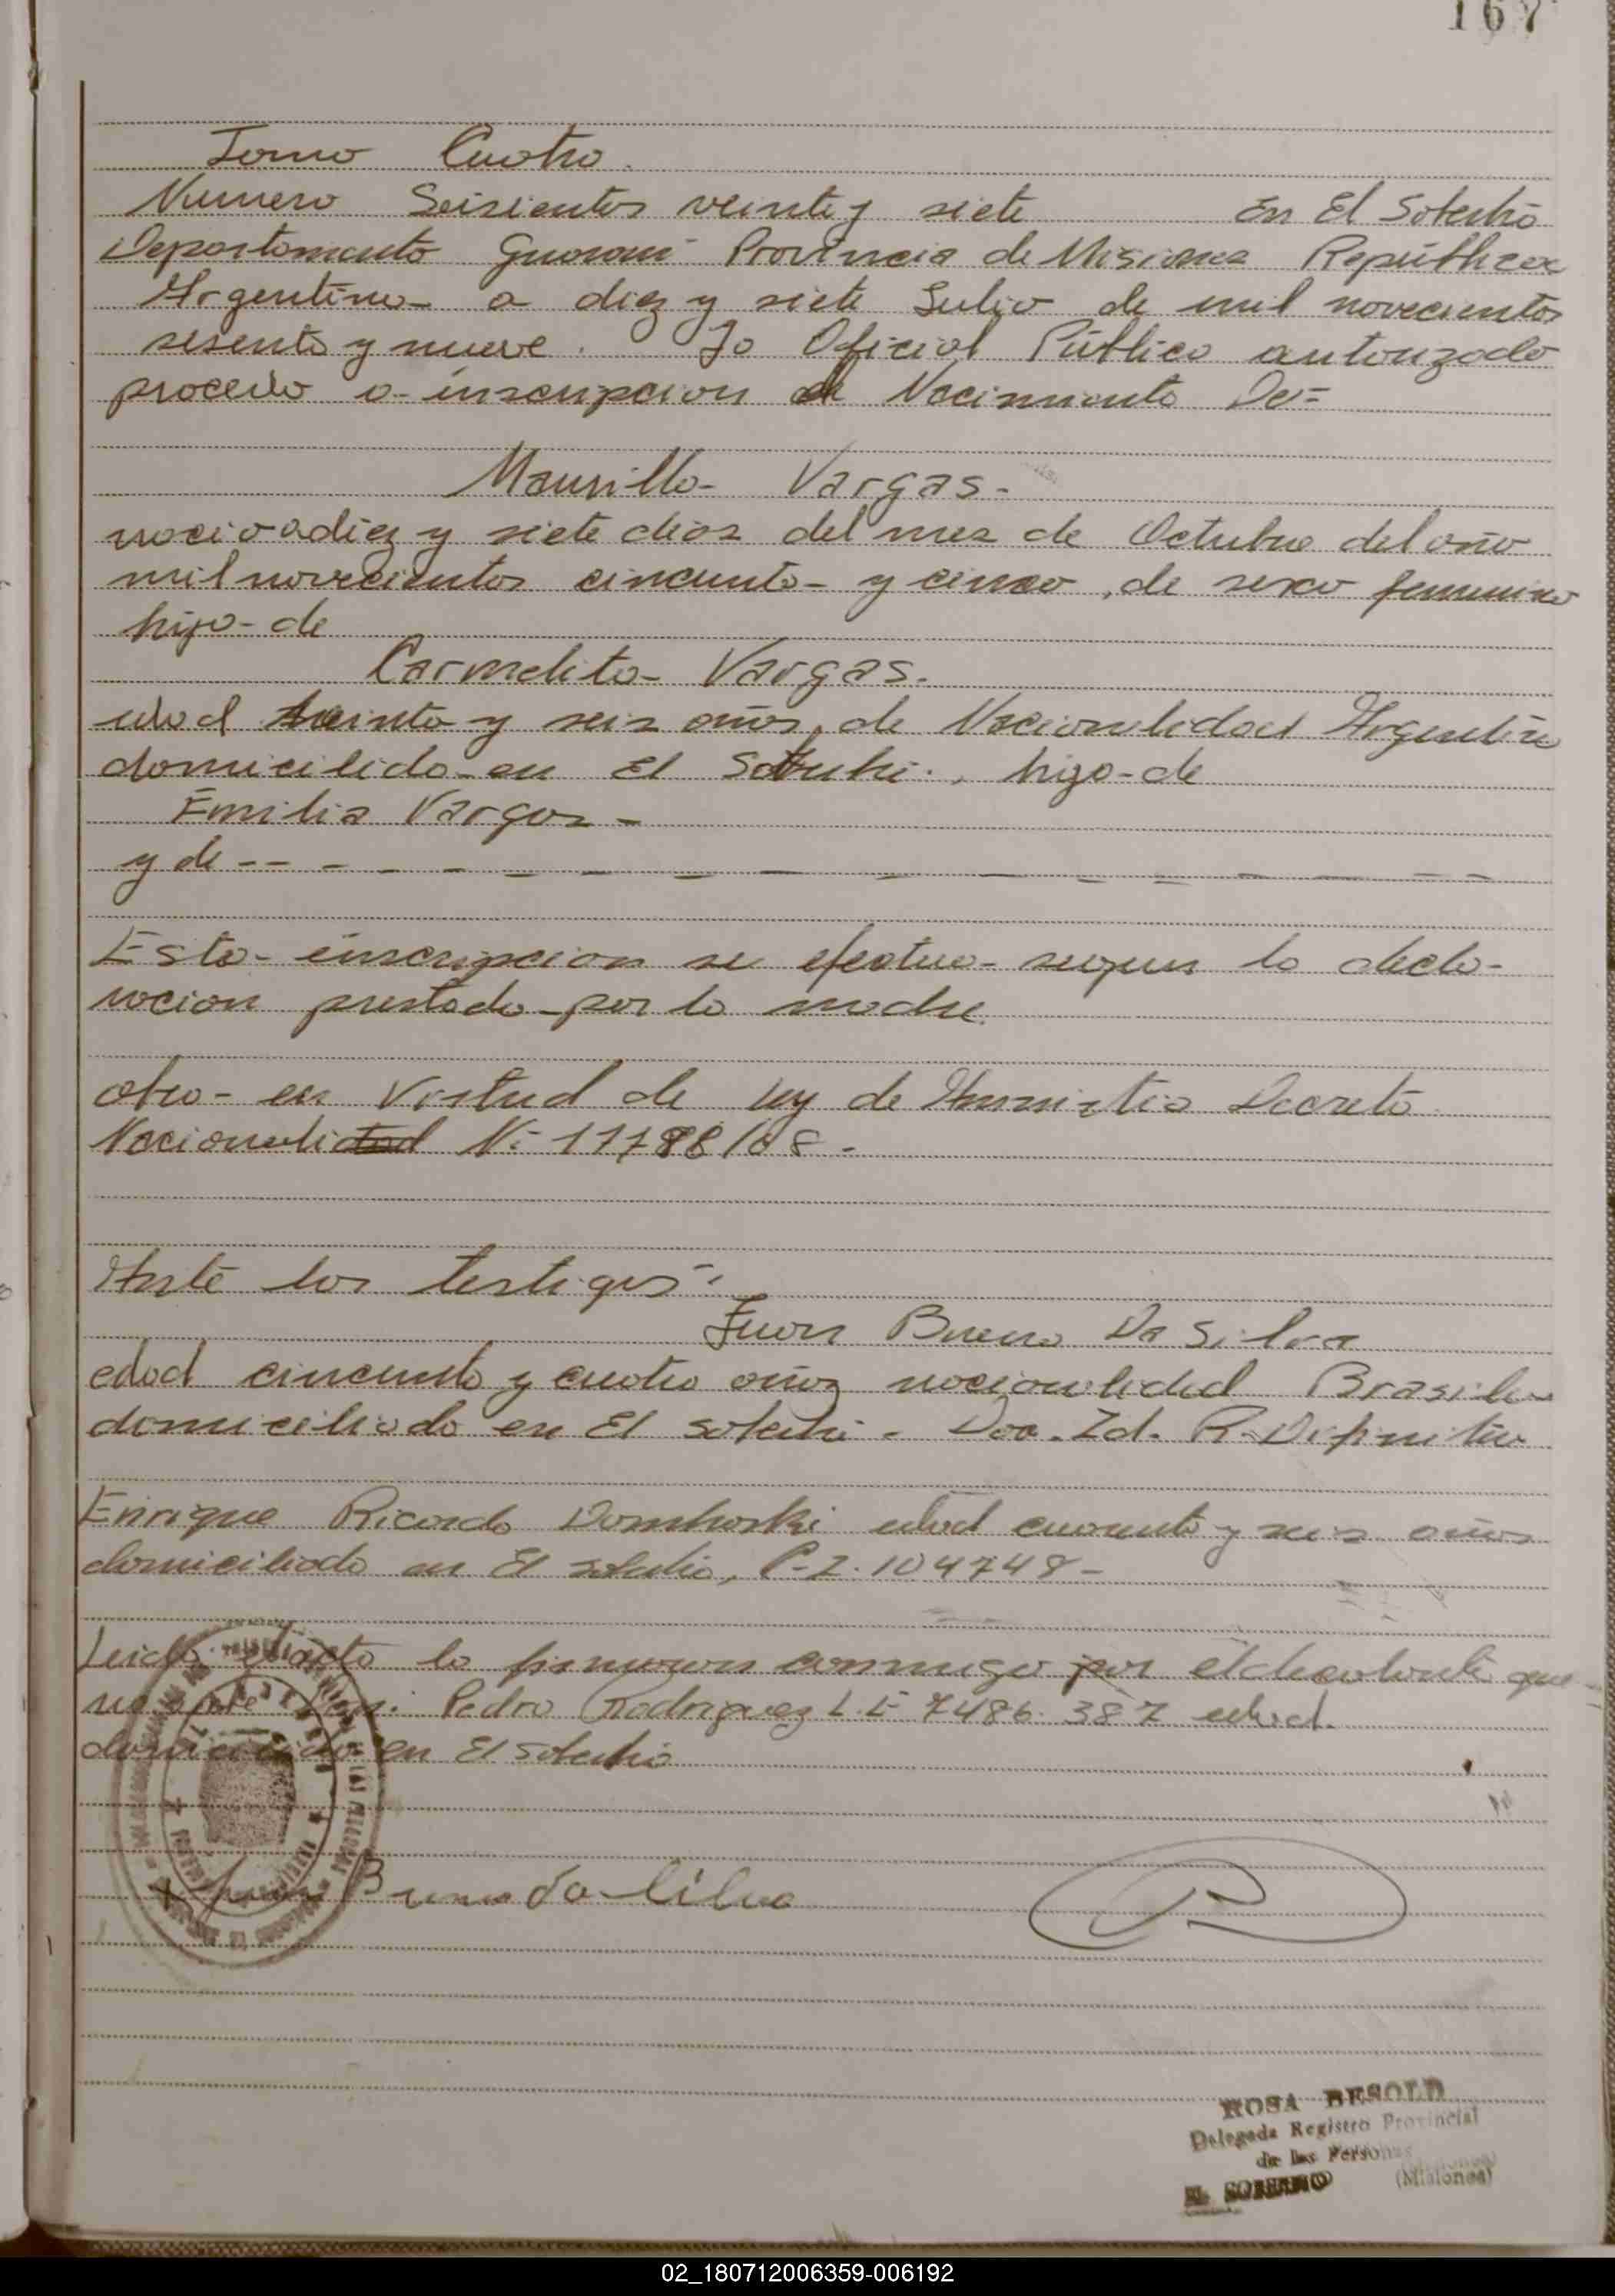 167
Tomo Cuatro.
Numero Seisientos veinte y siete En El Soberbio
Departamento Guarani Provincia de Misiones República
Argentina a diez y siete Julio de mil novecientos
sesenta y nueve. Yo Oficial Público autorizado
procedo a inscripcion de Nacimiento De=
Maurilla Vargas-
nacida diez y siete dias del mes de Octubre del año
mil novecientos cincuenta y cinco, de sexo femenino
hija de
Carmelita Vargas.
edad treinta y seis años, de Nacionalidad Argentina
domicilido en El Soberbio, hija de
Emilia Vargas-
y de
Esta inscripcion se efectua segun la decla-
racion prestada por la madre.
obro- en Virtud de ley de Amnistia Decreto
Nacionalidad N: 11788/68-
Ante los testigos:
Juan Bueno Da Silva
edad cincuenta y cuatro años nacionalidad Brasilera
domiciliado en El Soberbio. Doc. Id. R. Difinitiva
Enrique Ricardo Domhoski edad cuarenta y seis años
domiciliado en El Soberbio, C-I. 104748-
Leida el acta la firmaron conmigo por el declarante que
no Pedro Rodriguez L.E 7486.387 edad.
domiciliado en El Soberbio
Juan Bueno da Silva
ROSA BESOLD
Delegada Registro Provincial
de las Personas
EL SOBERBIO (Misiones)
02_180712006359-006192